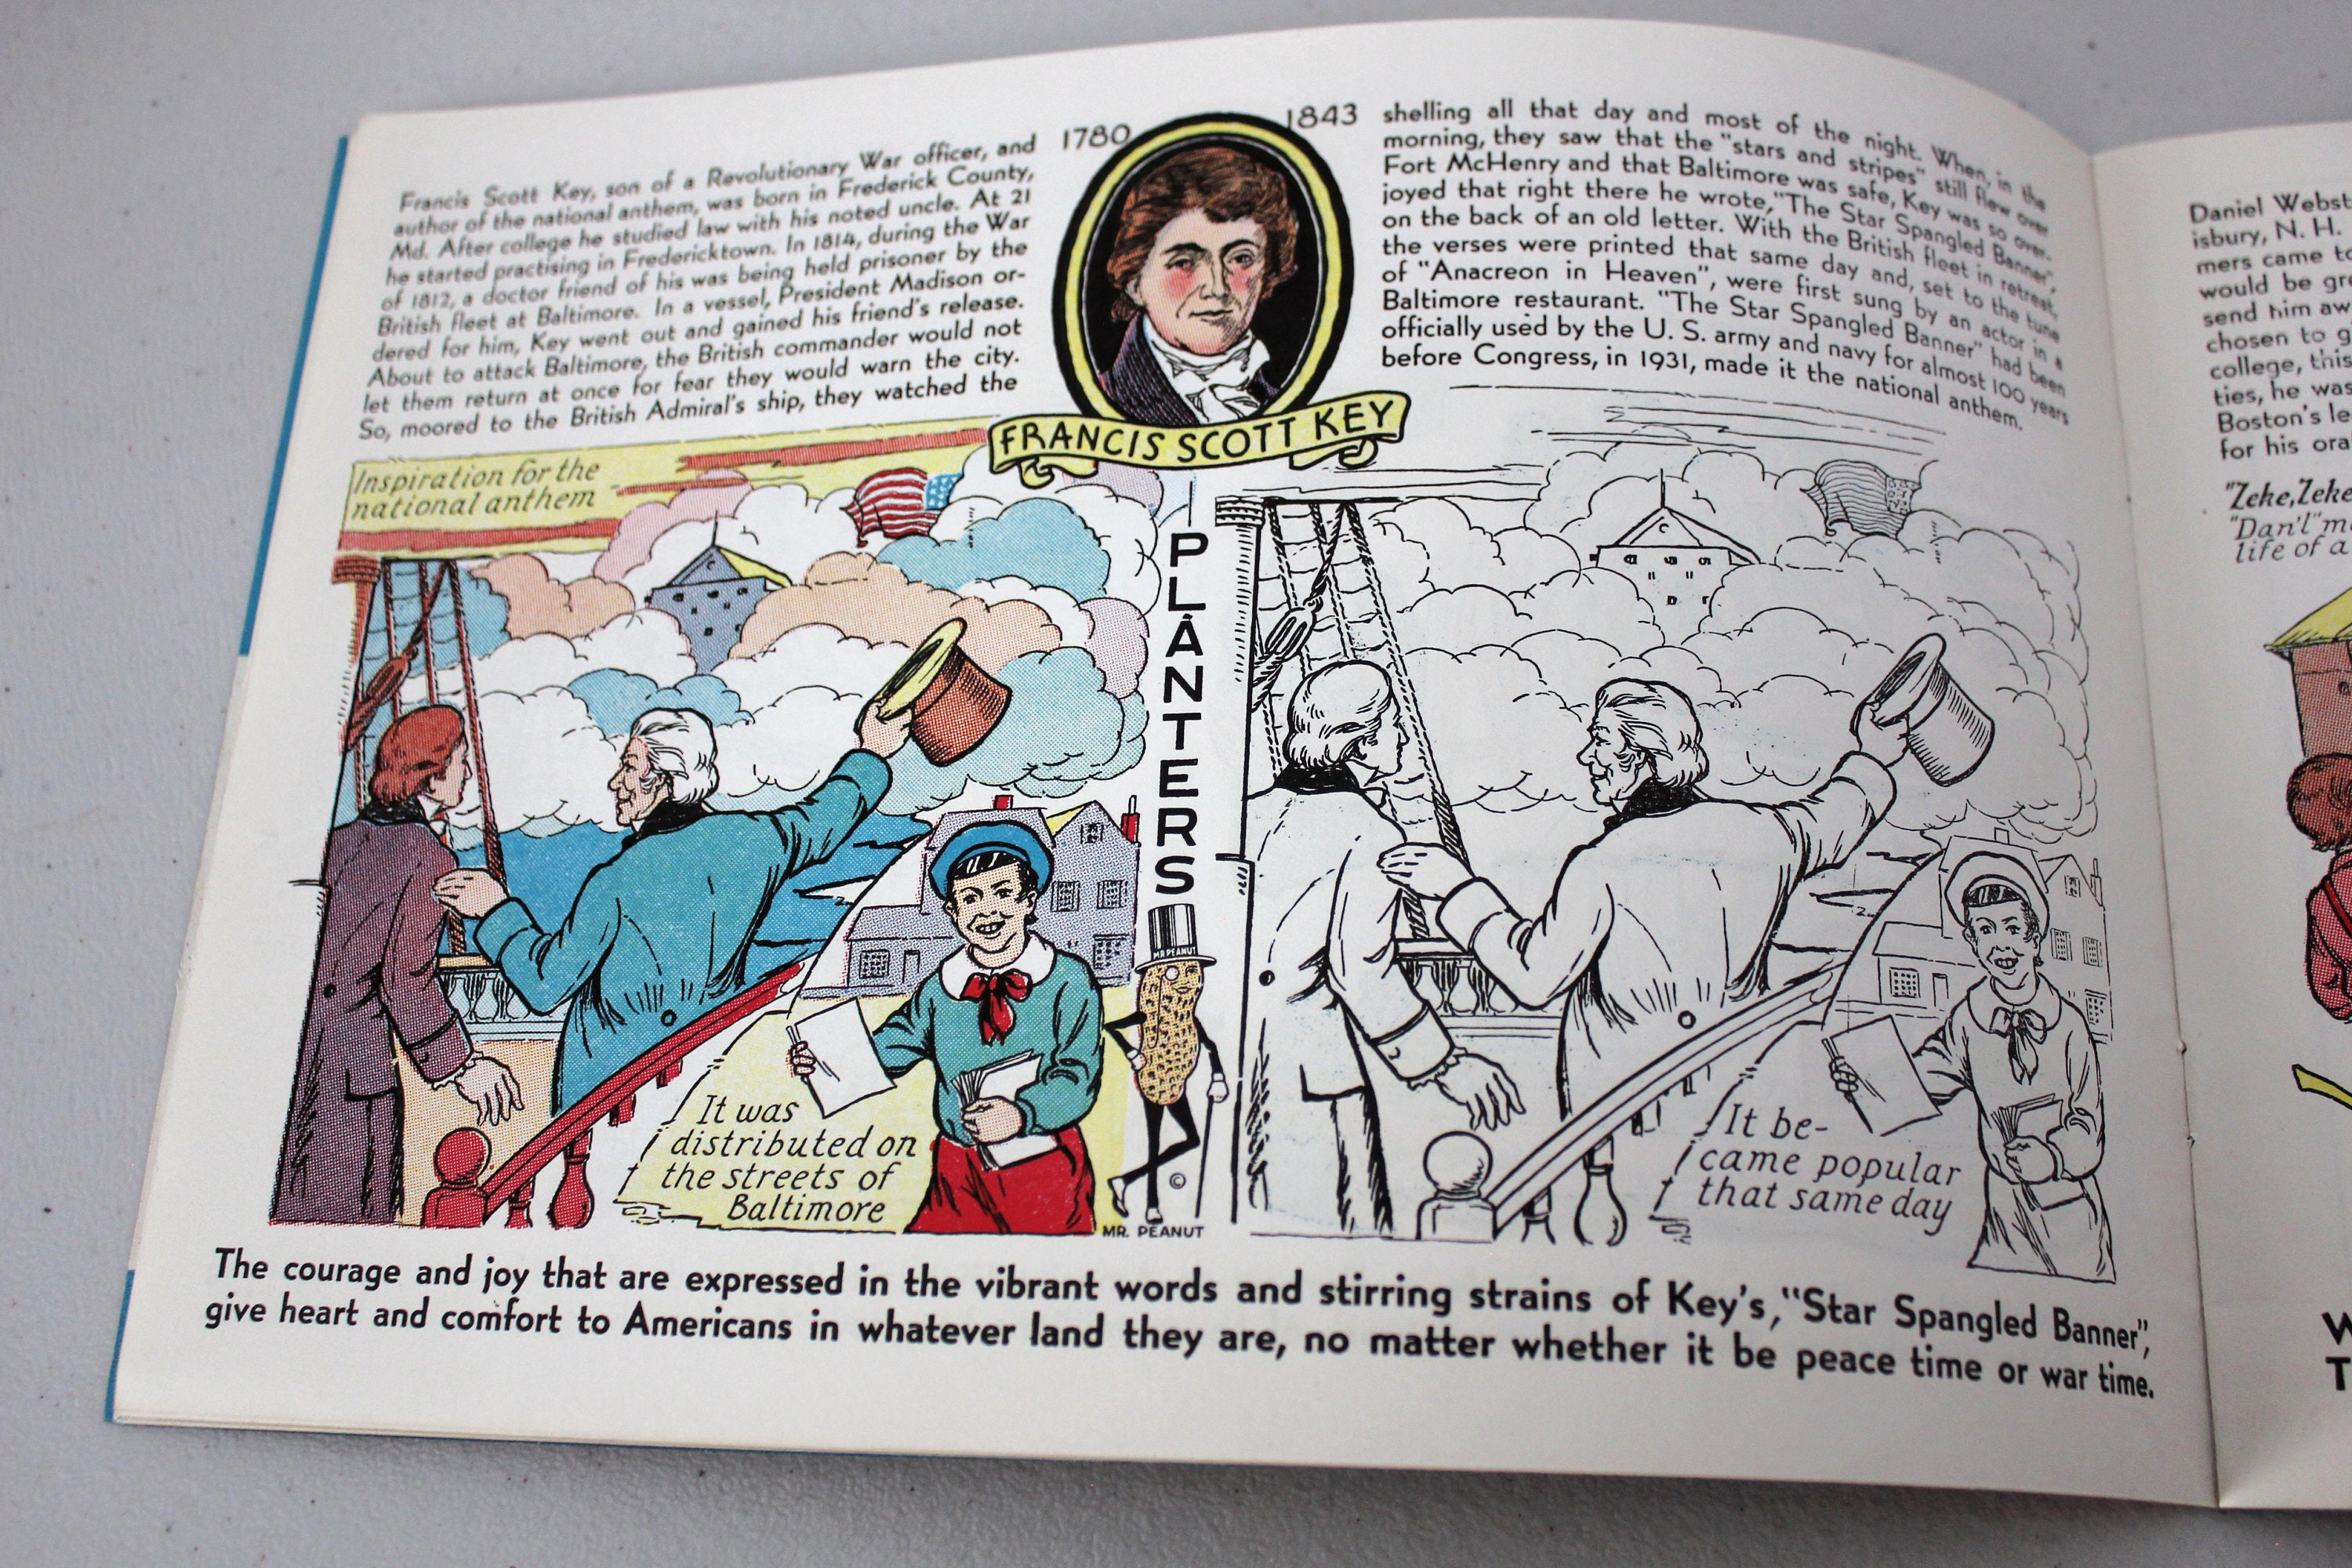 Francis Scott Key, son of a Revolutionary War officer, and
author of the national anthem, was born in Frederick County,
Md. After college he studied law with his noted uncle. At 21
he started practising in Fredericktown. In 1814, during the War
of 1812, a doctor friend of his was being held prisoner by the
British fleet at Baltimore. In a vessel, President Madison or-
dered for him, Key went out and gained his friend's release.
About to attack Baltimore, the British commander would not
let them return at once for fear they would warn the city.
So, moored to the British Admiral's ship, they watched the
1780
1843
FRANCIS SCOTT KEY
shelling all that day and most of the night. When, in the
morning, they saw that the "stars and stripes" still flew over
Fort McHenry and that Baltimore was safe, Key was so over-
joyed that right there he wrote, "The Star Spangled Banner",
on the back of an old letter. With the British fleet in retreat,
the verses were printed that same day and, set to the tune
of "Anacreon in Heaven", were first sung by an actor in a
Baltimore restaurant. "The Star Spangled Banner" had been
officially used by the U. S. army and navy for almost 100 years
before Congress, in 1931, made it the national anthem.
Inspiration for the
national anthem
PLANTERS
MR. PEANUT
It was
distributed on
the streets of
Baltimore
©
MR. PEANUT
It be-
came popular
that same day
The courage and joy that are expressed in the vibrant words and stirring strains of Key's, "Star Spangled Banner",
give heart and comfort to Americans in whatever land they are, no matter whether it be peace time or war time.
Daniel Webst
isbury, N. H.
mers came to
would be gre
send him aw
chosen to g
college, this
ties, he was
Boston's le
for his ora
"Zeke, Zeke
"Dan'l" m
life of a
W
T